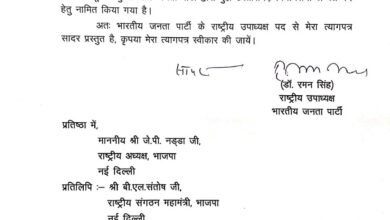 हेतु नामित किया गया है।
अतः भारतीय जनता पार्टी के राष्ट्रीय उपाध्यक्ष पद से मेरा त्यागपत्र
सादर प्रस्तुत है, कृपया मेरा त्यागपत्र स्वीकार की जायें।
(डॉ. रमन सिंह)
राष्ट्रीय उपाध्यक्ष
भारतीय जनता पार्टी
प्रतिष्ठा में,
माननीय श्री जे.पी. नड्डा जी,
राष्ट्रीय अध्यक्ष, भाजपा
नई दिल्ली
प्रतिलिपि :– श्री बी.एल.संतोष जी,
राष्ट्रीय संगठन महामंत्री, भाजपा
नई दिल्ली